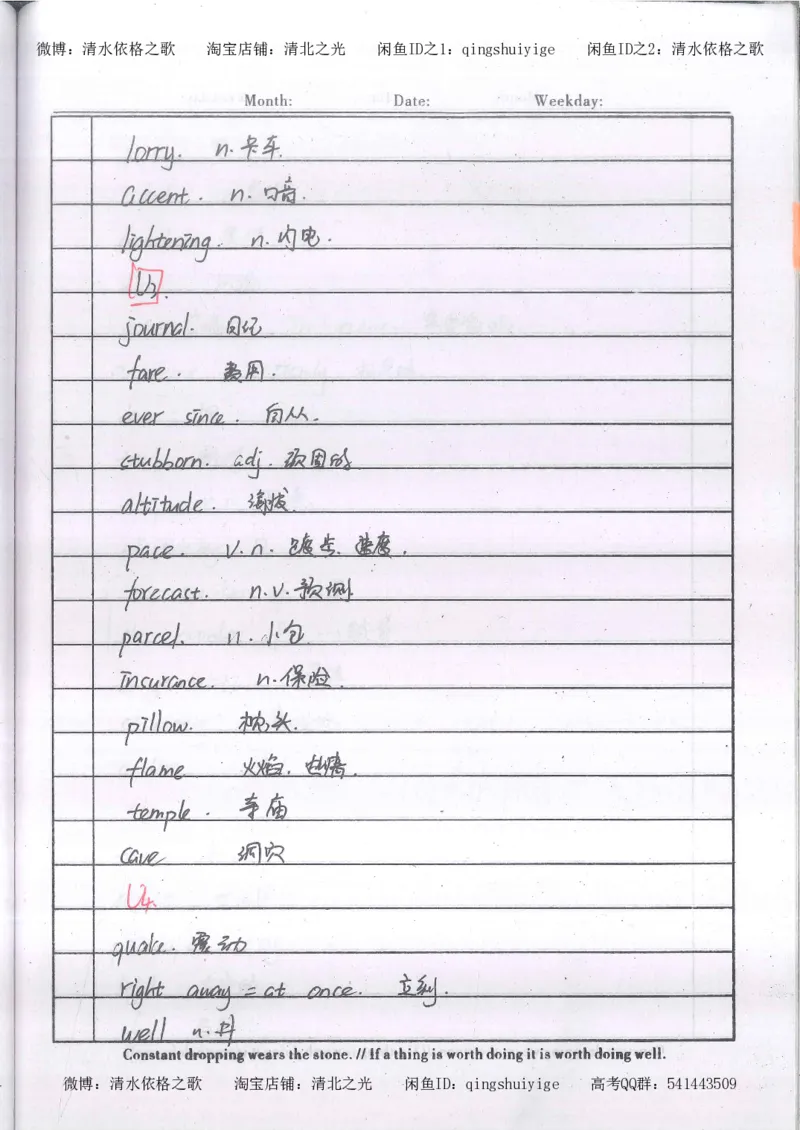 微博：清水依格之歌 淘宝店铺：清北之光 闲鱼ID之1：qingshuiyige 闲鱼ID之2：清水依格之歌
Month: Date: Weekday:
lorry. n.卡车.
accent. n.口音.
lightening. n.闪电.
U3.
journal. 日记
fare. 费用.
ever since. 自从.
stubborn. adj.顽固的
altitude. 海拔
pace. v.n. 踱步、速度.
forecast. n.v.预测
parcel. n.小包
insurance. n.保险.
pillow. 枕头.
flame 火焰.
temple. 寺庙
cave 洞穴
U4.
quake. 震动
right away = at once. 立刻.
well n.井
Constant dropping wears the stone. // If a thing is worth doing it is worth doing well.
微博：清水依格之歌 淘宝店铺：清北之光 闲鱼ID：qingshuiyige 高考QQ群：541443509